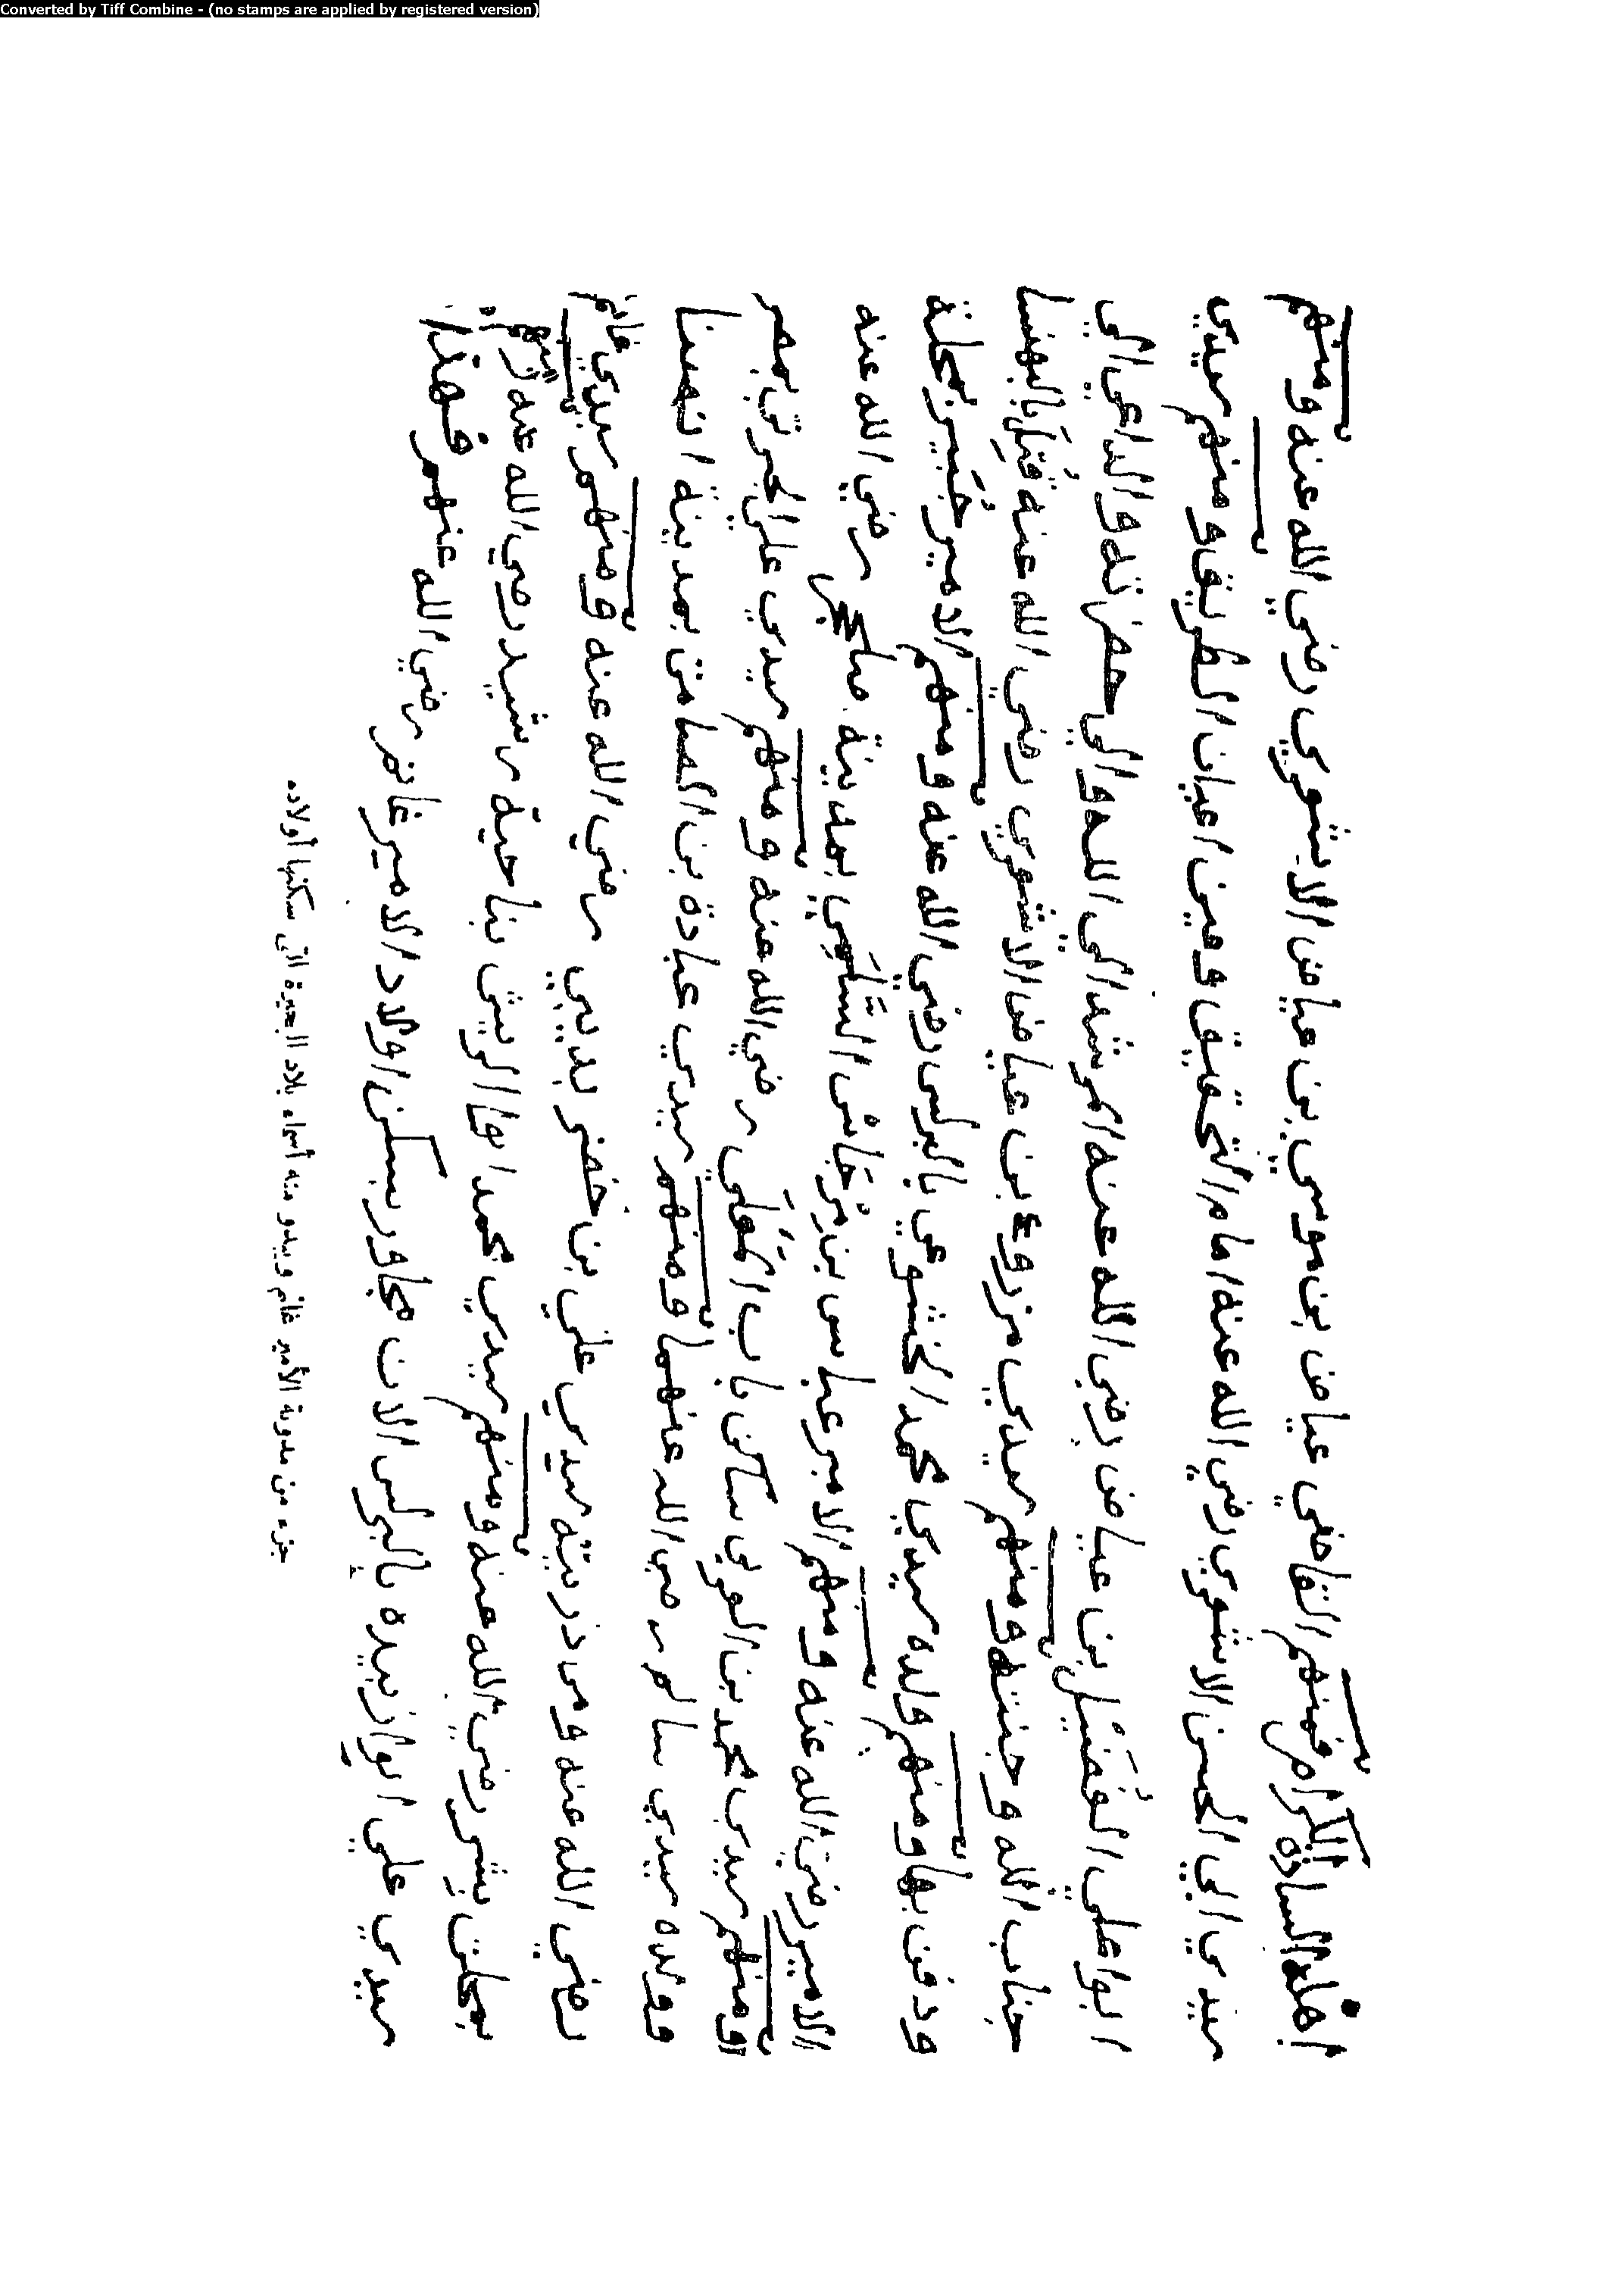 Converted by Tiff Combine - (no stamps are applied by registered version)
السادة الكرام فمنهم القاضي عياض بن موسي بن عياض الاشعري رضي الله عنه ومنهم
سيدي ابي الحسن الاشعري رضي الله عنه امام التحقيق ومين اعيان الطريق ومنهم سيدي
ابو علي الفُضَيْل بن عياض رضي الله عنه المرشد الى الله والي حضرته والداعي الي
جناب الله وجنته ومنهم سيدي مزروع بن عياض الاشعري رضي الله عنه قُتِلَ بالبهنسا
ودفن بها ومنهم ولده سيدي محمد الخشوعي بالبرلس رضي الله عنه ومنهم الامير جُبَير بمحلة
الامير رضي الله عنه ومنهم الامير عباس بن مِرْداس السَّلَمِي بمدينة رضي الله عنه
ومنهم سيدي محمد بن العربي ساكن باب المُعَلَّى رضي الله عنه ومنهم سيدي علي بمصر
وولده سيدي سالم رضي الله عنهما ومنهم سيدي عبادة بن الصامت بمدينة انصنا
رضي الله عنه ومن ذريته سيدي علي بن خضر رضي الله عنه ومنهم سيدي غانم
رضي الله عنه ومنهم سيدي محمد ابو الريش بناحية رشيد رضي الله عنه
سيدي علي ابو زبيده بالبرلس الان مجاور بسكن اولاد الامير غانم رضي الله عنهم فهذا
جزء من مدونة الأمير غانم ويبدو منه أسماء بلاد البحيرة التي سكنها أولاده